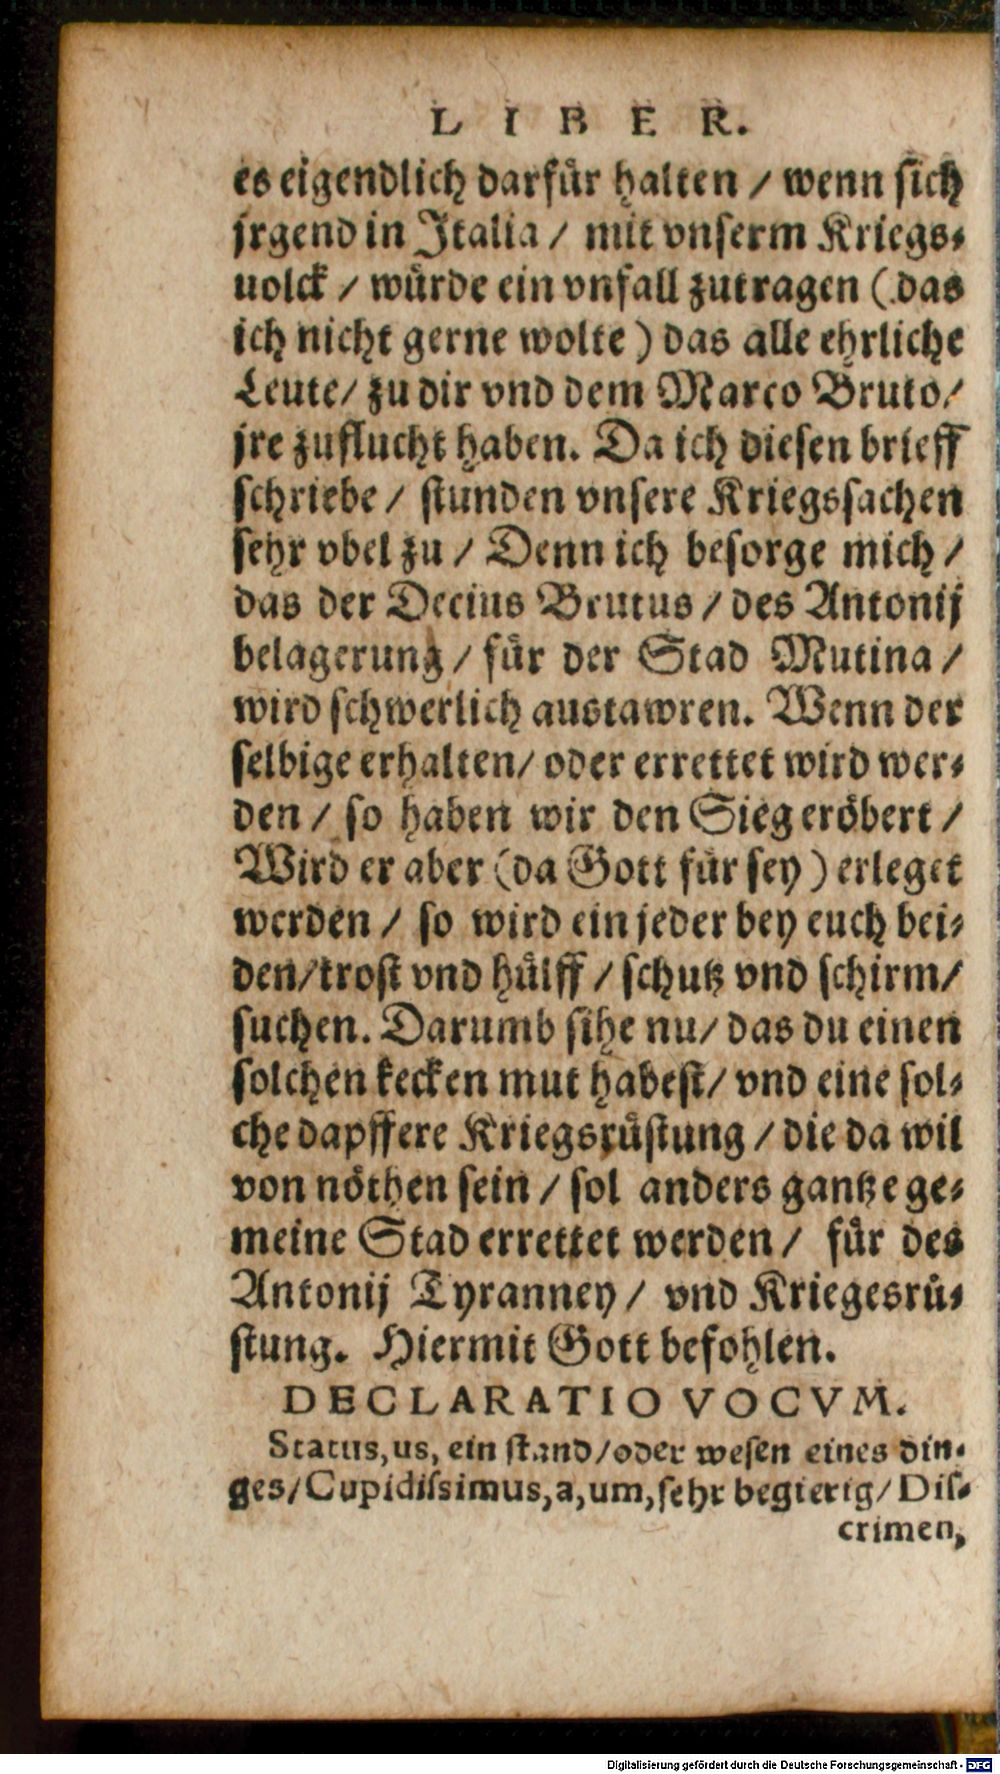 LIBER.
es eigendlich darfür halten / wenn sich
jrgend in Italia / mit vnserm Kriegs-
uolck / würde ein vnfall zutragen (das
ich nicht gerne wolte) das alle ehrliche
Leute / zu dir vnd dem Marco Bruto /
jre zuflucht haben. Da ich diesen brieff
schriebe / stunden vnsere Kriegssachen
sehr vbel zu / Denn ich besorge mich /
das der Decius Brutus / des Antonij
belagerung / für der Stad Mutina /
wird schwerlich austawren. Wenn der
selbige erhalten / oder errettet wird wer-
den / so haben wir den Sieg eröbert /
Wird er aber (da Gott für sey) erleget
werden / so wird ein jeder bey euch bei-
den / trost vnd hülff / schutz vnd schirm /
suchen. Darumb sihe nu / das du einen
solchen kecken mut habest / vnd eine sol-
che dapffere Kriegsrüstung / die da wil
von nöthen sein / sol anders gantze ge-
meine Stad errettet werden / für des
Antonij Tyranney / vnd Kriegesrü-
stung. Hiermit Gott befohlen.
DECLARATIO VOCVM.
Status, us, ein stand / oder wesen eines din-
ges / Cupidissimus, a, um, sehr begierig / Dis-
crimen,
Digitalisierung gefördert durch die Deutsche Forschungsgemeinschaft - DFG